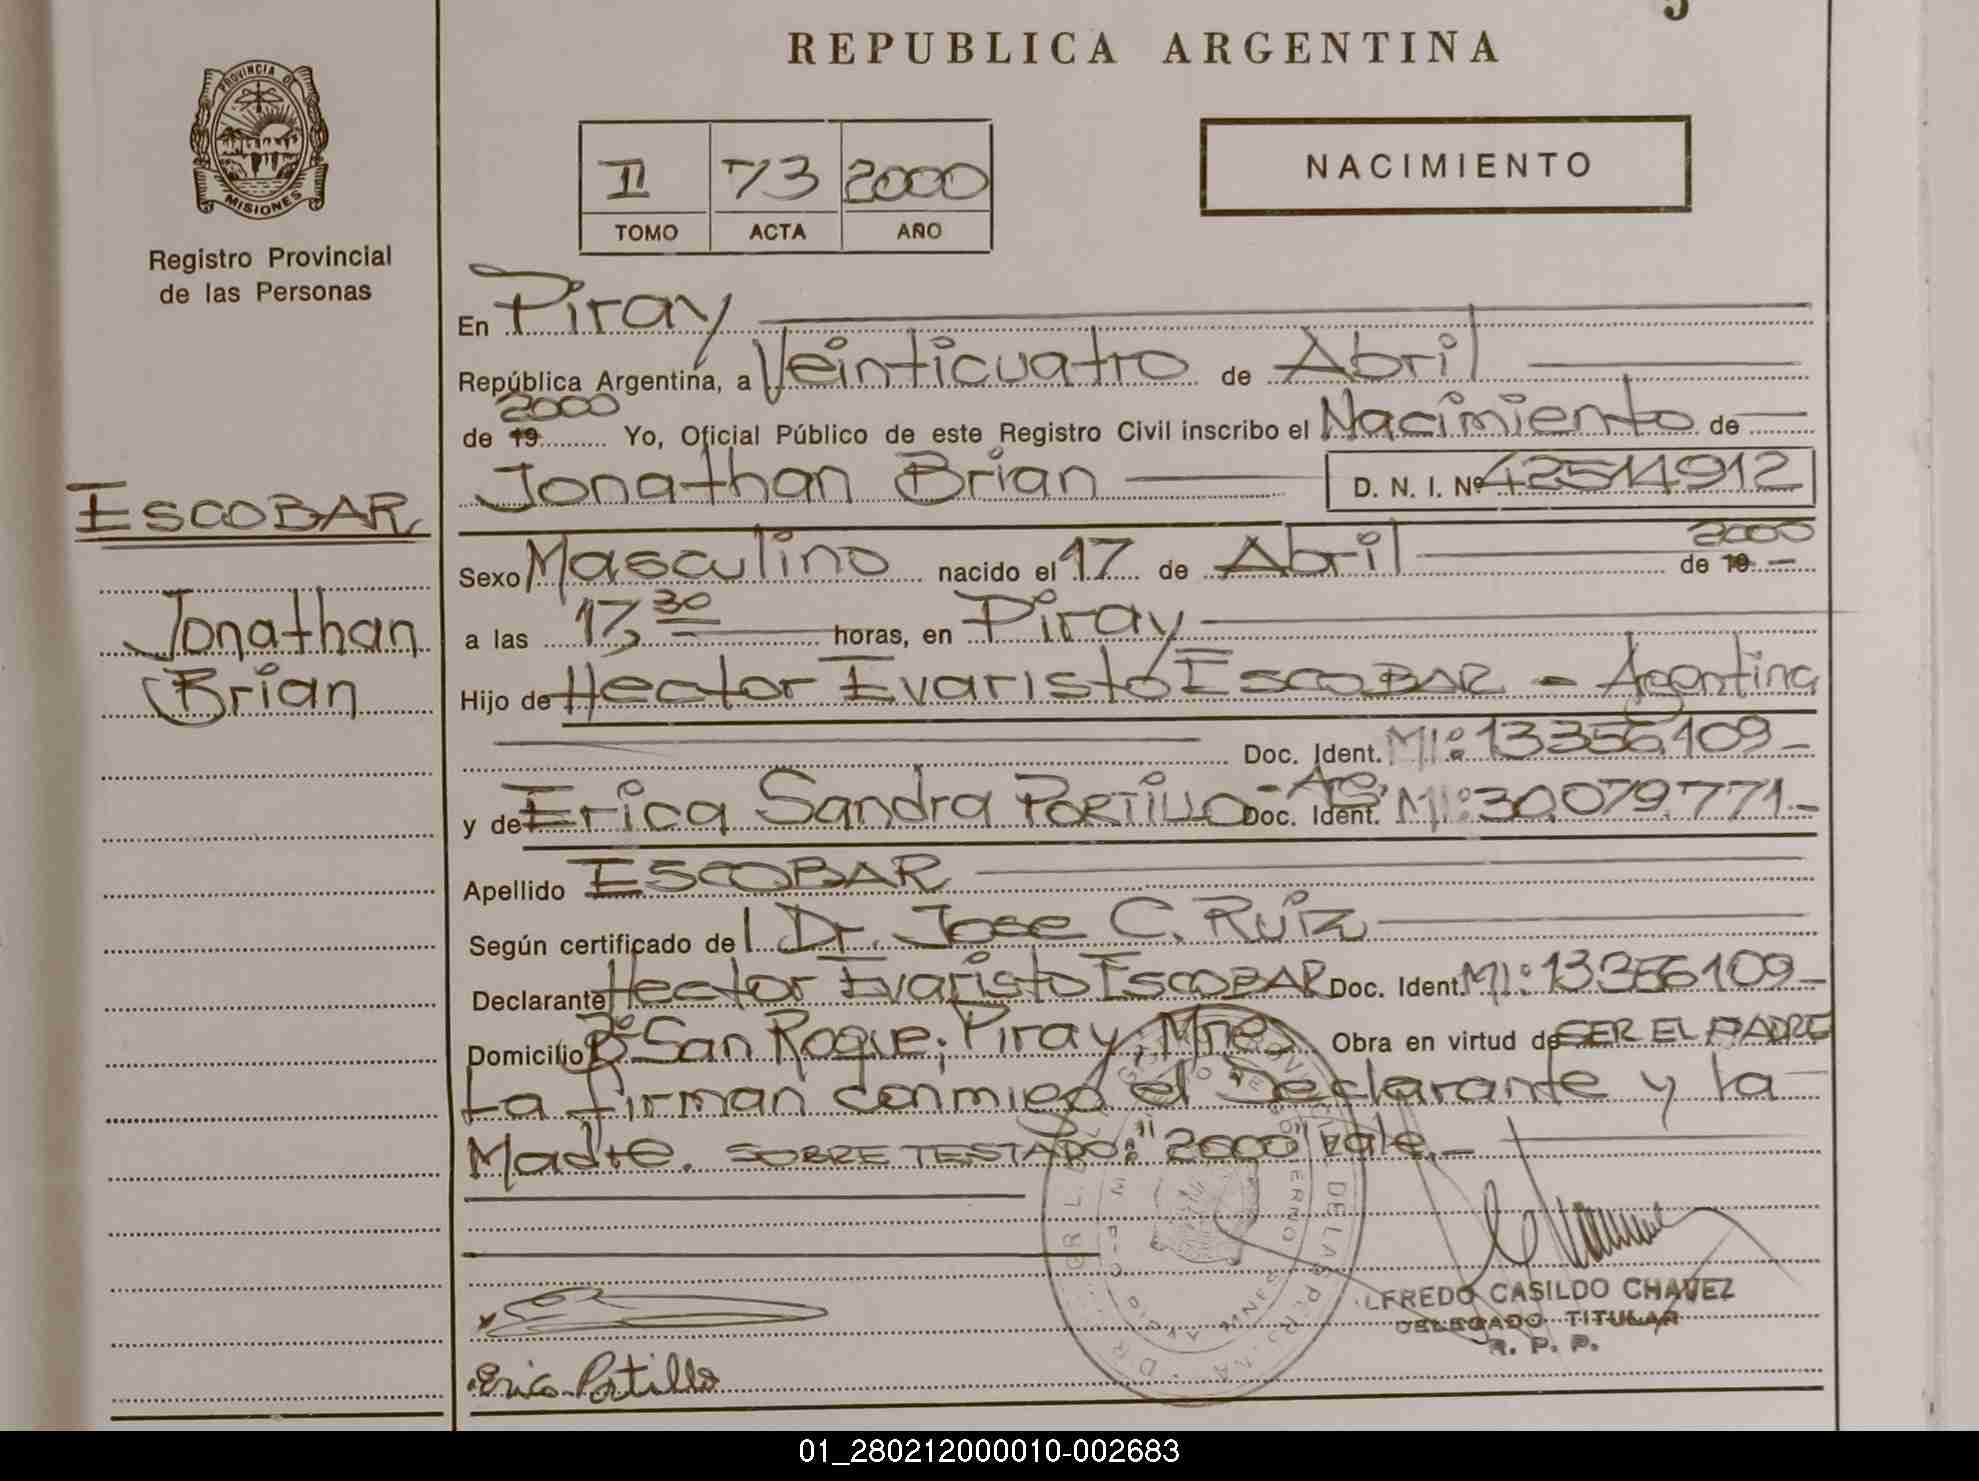 5
REPUBLICA ARGENTINA
PROVINCIA DE
MISIONES
Registro Provincial
de las Personas
II 73 2000
TOMO ACTA AÑO
NACIMIENTO
ESCOBAR
Jonathan
Brian
En Piray
República Argentina, a Veinticuatro de Abril
2000
de 19 Yo, Oficial Público de este Registro Civil inscribo el Nacimiento de
Jonathan Brian D. N. I. Nº 42514912
2000
Sexo Masculino nacido el 17 de Abril de 19
a las 13,30 horas, en Piray
Hijo de Hector Evaristo ESCOBAR - Argentina
Doc. Ident. MI: 13356109-
y de Erica Sandra PORTILLO - Arg. Doc. Ident. MI: 30.079.771.-
Apellido ESCOBAR
Según certificado del Dr. Jose C. Ruiz
Declarante Hector Evaristo ESCOBAR Doc. Ident. MI: 13356109-
Domicilio Bº San Roque, Piray, Mnes. Obra en virtud de SER EL PADRE
La firman conmigo el Declarante y la
Madre. SOBRE TESTADO: "2000" vale.-
Erica Portillo
LFREDO CASILDO CHAVEZ
DELEGADO TITULAR
R. P. P.
01_280212000010-002683